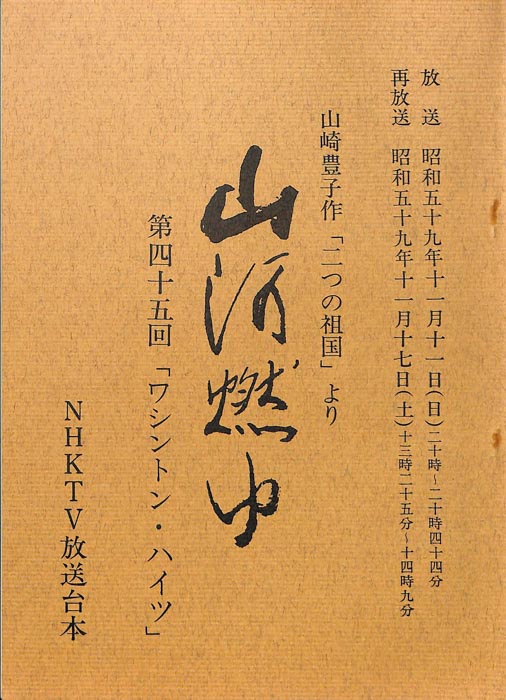 放送 昭和五十九年十一月十一日(日)二十時~二十時四十四分
再放送 昭和五十九年十一月十七日(土)十三時二十五分~十四時九分
山崎豊子作「二つの祖国」より
山河燃ゆ
第四十五回「ワシントン・ハイツ」
NHKTV放送台本